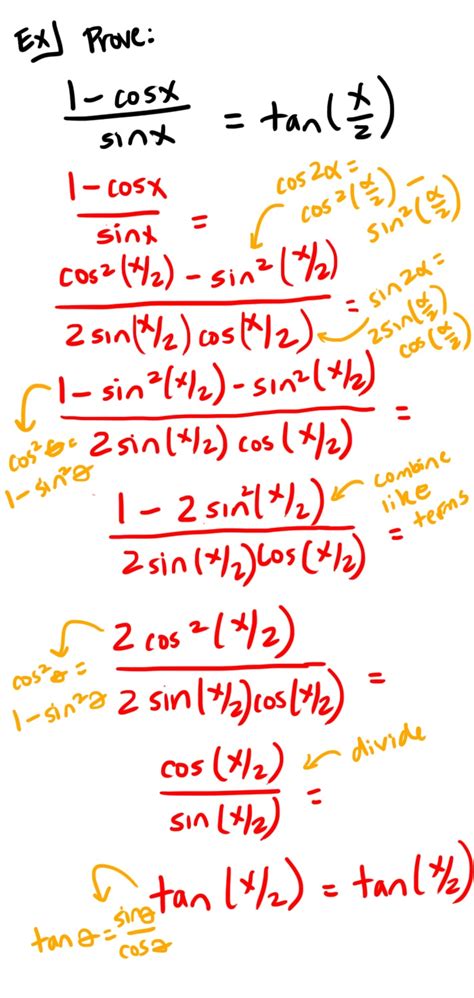 Ex] Prove:
1 - cosx / sinx = tan(x/2)
1 - cosx / sinx =
cos2α = cos²(α/2) - sin²(α/2)
cos²(x/2) - sin²(x/2) / 2 sin(x/2) cos(x/2) =
sin2α = 2sin(α/2) cos(α/2)
1 - sin²(x/2) - sin²(x/2) / 2 sin(x/2) cos(x/2) =
cos²θ = 1 - sin²θ
1 - 2 sin²(x/2) / 2 sin(x/2) cos(x/2) =
combine like terms
2 cos²(x/2) / 2 sin(x/2) cos(x/2) =
cos²θ = 1 - sin²θ
cos(x/2) / sin(x/2) =
divide
tan(x/2) = tan(x/2)
tanθ = sinθ / cosθ